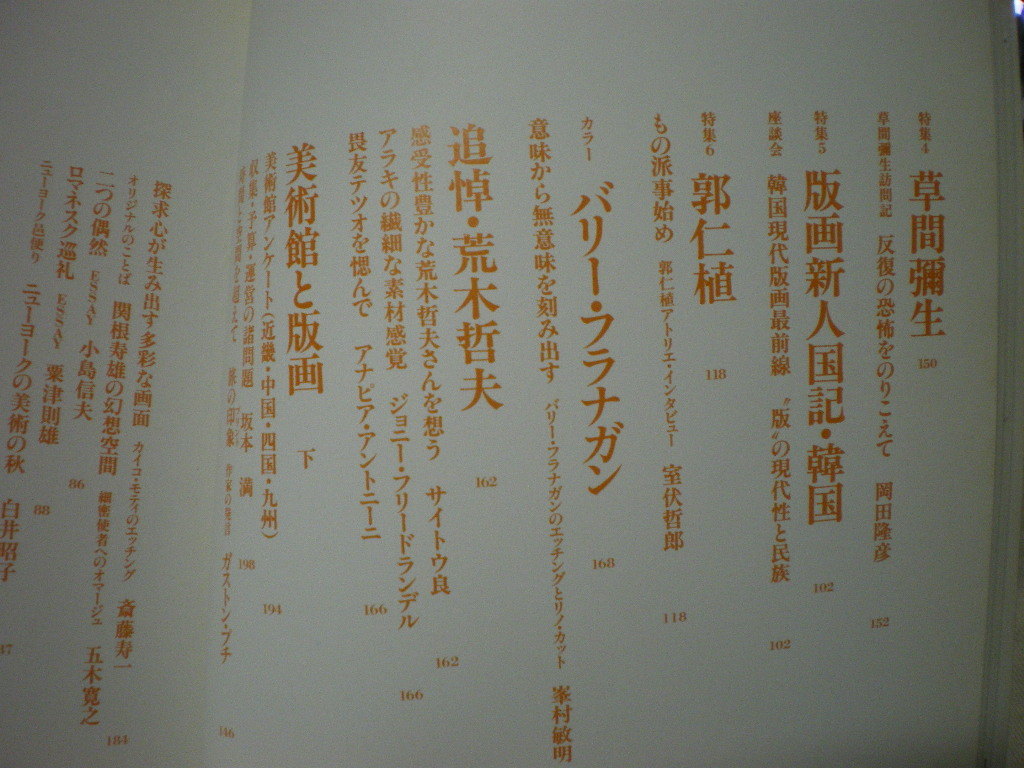 特集4 草間彌生 150
草間彌生訪問記 反復の恐怖をのりこえて 岡田隆彦 152
特集5 版画新人国記・韓国 102
座談会 韓国現代版画最前線 〝版〟の現代性と民族 102
特集6 郭仁植 118
もの派事始め 郭仁植アトリエ・インタビュー 室伏哲郎 118
カラー バリー・フラナガン 168
意味から無意味を刻み出す バリー・フラナガンのエッチングとリノ・カット 峯村敏明
追悼・荒木哲夫 162
感受性豊かな荒木哲夫さんを想う サイトウ良 162
アラキの繊細な素材感覚 ジョニー・フリードランデル 166
畏友テツオを偲んで アナピア・アントニーニ 166
美術館と版画 下
美術館アンケート(近畿・中国・四国・九州) 194
収集・予算・運営の諸問題 坂本満 198
旅の印象 作家の発言 ガストン・プチ 146
探求心が生み出す多彩な画面 カイコ・モティのエッチング 斎藤寿一
オリジナルのことば 関根寿雄の幻想空間 細密使者へのオマージュ 五木寛之 184
二つの偶然 ESSAY 小島信夫 86
ロマネスク巡礼 ESSAY 粟津則雄 88
ニューヨーク皀便り ニューヨークの美術の秋 白井昭子